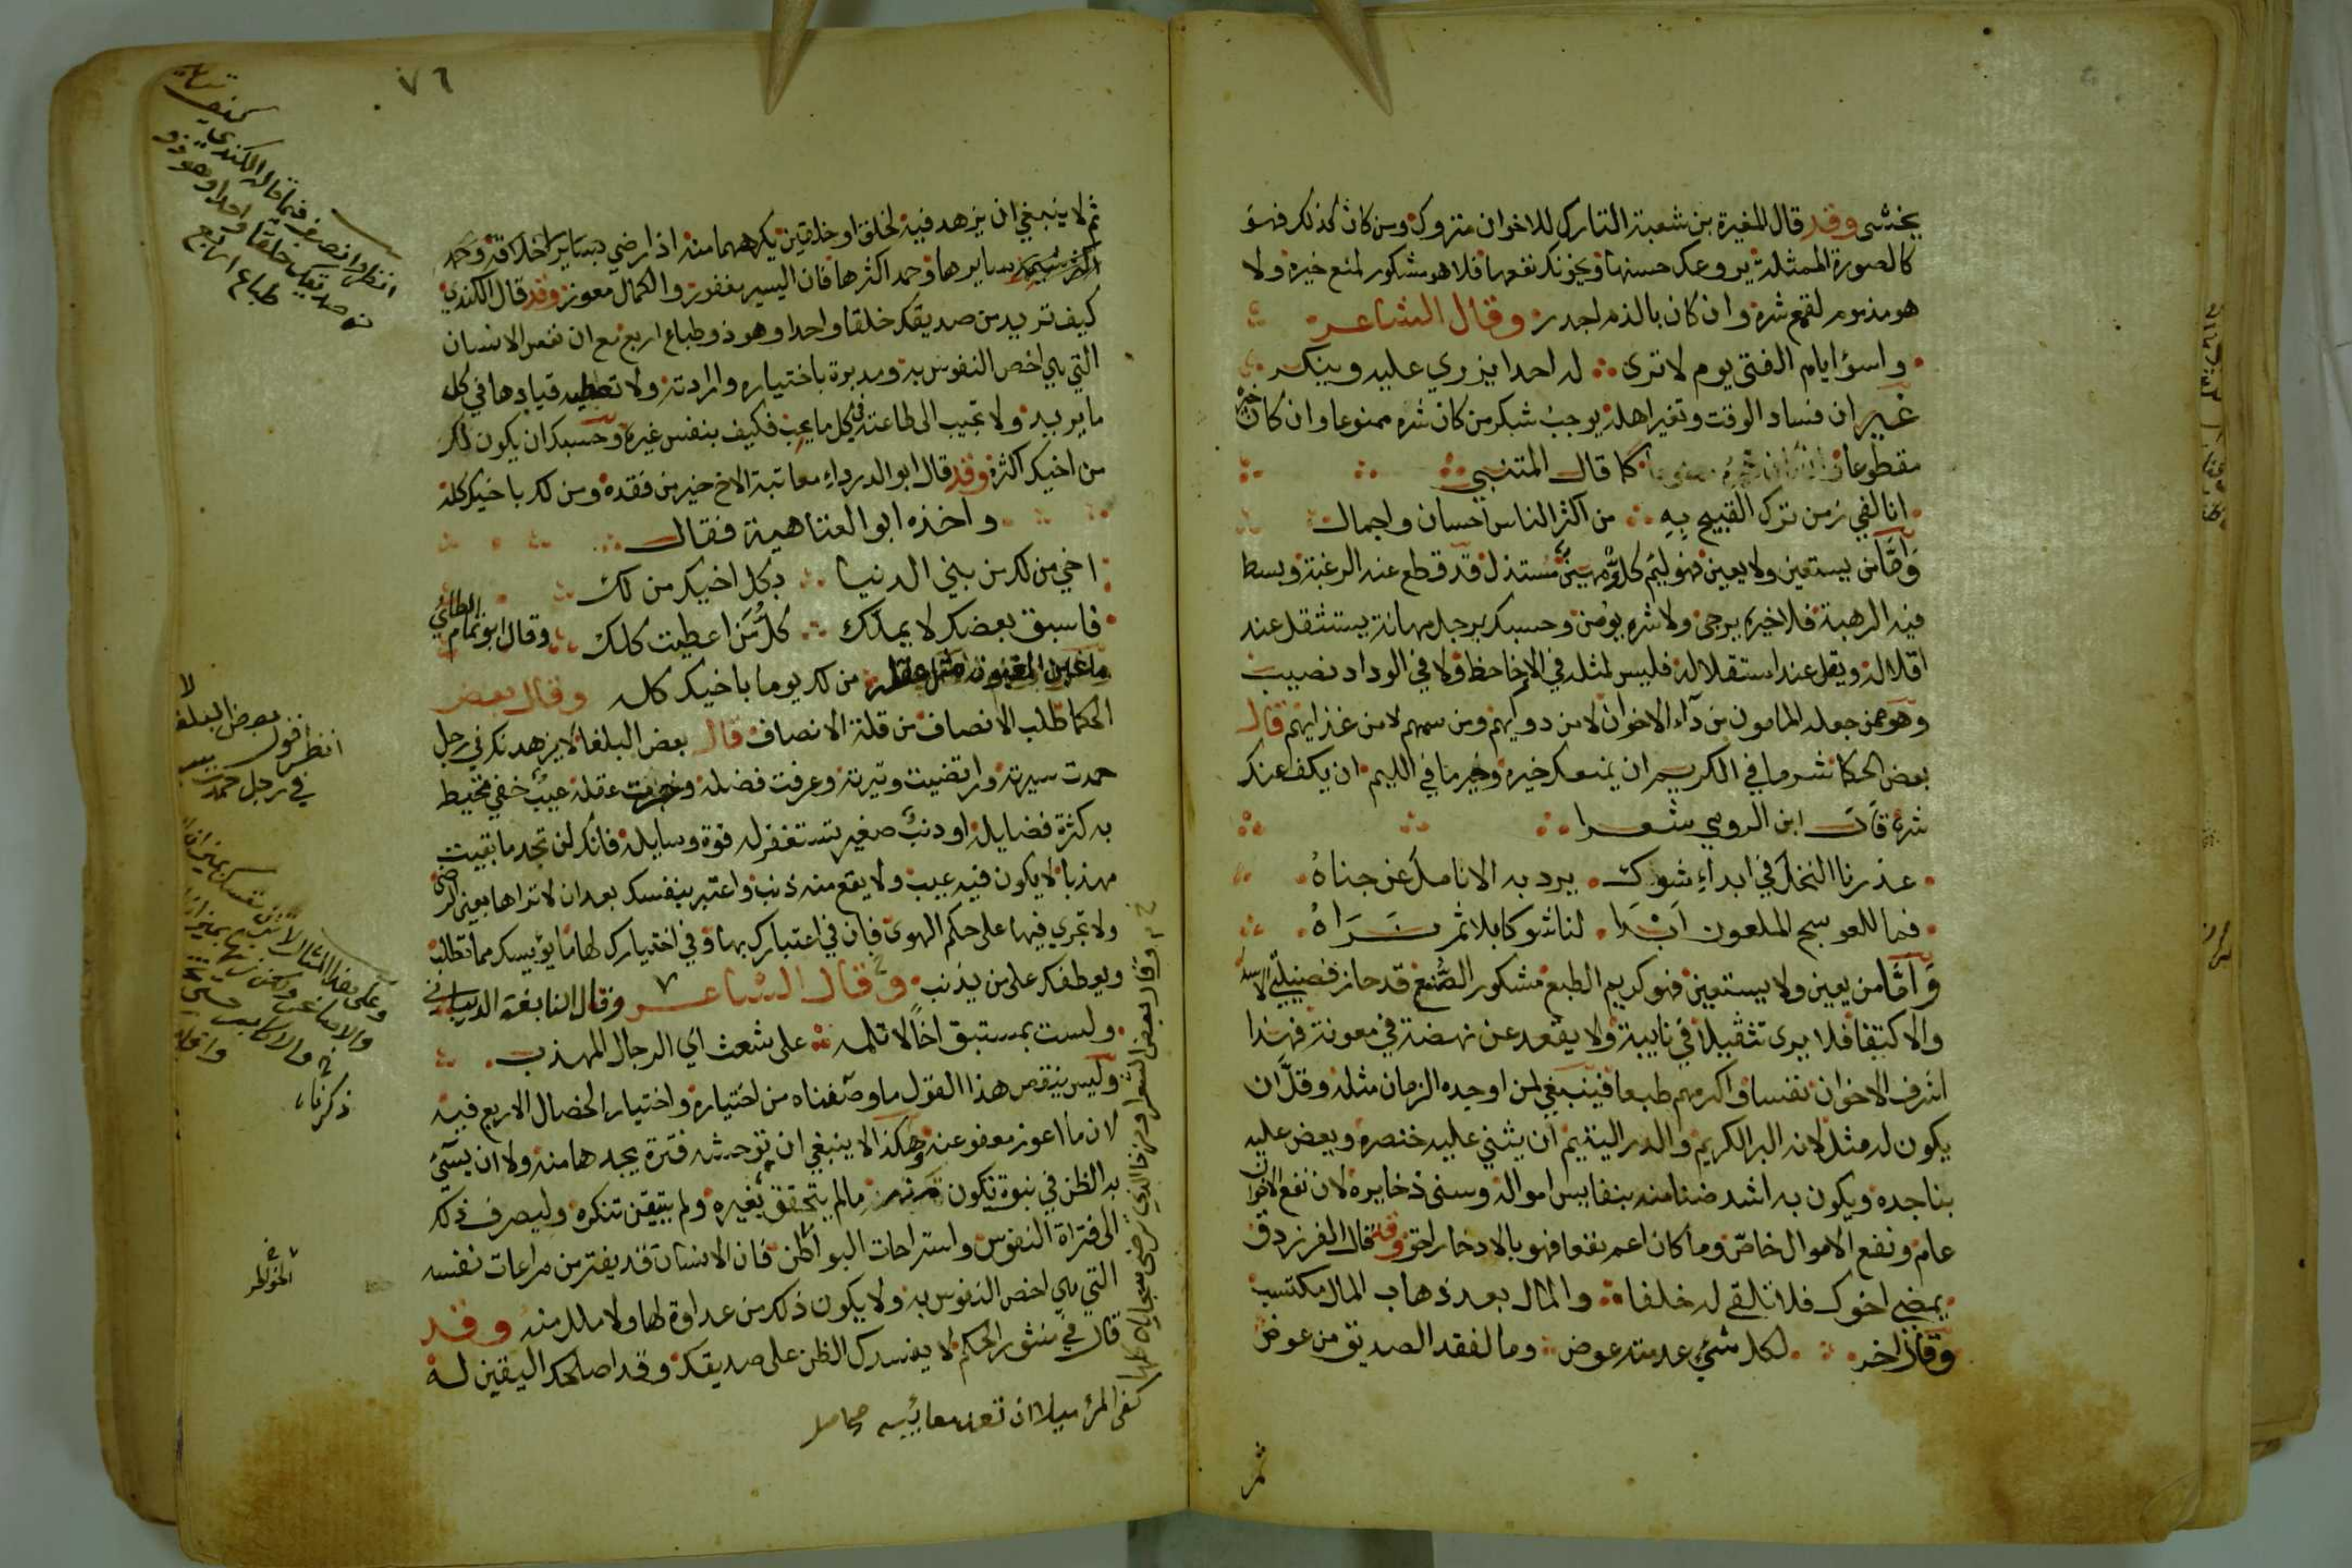 يخشى وقد قال المغيرة بن شعبة التارك للاخوان متروك ومن كان كذلك فهو
كالصورة الممثلة يروعك حسنها ويخونك نفعها فلا هو مشكور لمنع خيره ولا
هو مذموم لقمع شره وان كان بالذم اجدر وقال الشاعر
واسؤ ايام الفتى يوم لا ترى له احدا يزري عليه وينكر
غير ان فساد الوقت وتغير اهله يوجب شكر من كان شره ممنوعا وان كان خيره
مقطوعا كما قال المتنبي
انا لفي زمن ترك القبيح به من اكثر الناس احسان واجمال
واما من يستعين ولا يعين فهو ليم كل مهين مستذل قد قطع عنه الرغبة وبسط
فيه الرهبة فلا خيره يرجى ولا شره يؤمن وحسبك برجل مهانة يستثقل عند
اقلاله ويقل عند استقلاله فليس لمثله في الاخا حظ ولا في الوداد نصيب
وهو ممن جعله المامون من داء الاخوان لا من دوايهم ومن سمهم لا من غذايهم قال
بعض الحكما شر ما في الكريم ان يمنعك خيره وخير ما في الليم ان يكف عنك
شره قال ابن الرومي شعرا
عذرنا النخل في ابداء شوك يرد به الانامل عن جناه
فما للعوسج الملعون ابدا لنا شوكا بلا ثمر نراه
واما من يعين ولا يستعين فهو كريم الطبع مشكور الصنع قد حاز فضيلتي الابتدا
والاكتفا فلا يرى ثقيلا في نايبة ولا يقعد عن نهضة في معونة فهذا
اشرف الاخوان نفسا واكرمهم طبعا فينبغي لمن اوجده الزمان مثله وقل ان
يكون له مثل لانه البر الكريم والدر اليتيم ان يثني عليه خنصره ويعض عليه
بناجده ويكون به اشد ضنا منه بنفايس امواله وسنى ذخايره لان نفع الاخوان
عام ونفع الاموال خاص وما كان اعم نفعا فهو بالادخار احق وقد قال الفرزدق
يمضي اخوك فلا تلقى له خلفا والمال بعد ذهاب المال مكتسب
وقال اخر لكل شيء عدمته عوض وما لفقد الصديق من عوض
ثم
٧٦
ثم لا ينبغي ان يزهد فيه لخلق او خلقين يكرههما منه اذا رضي بساير اخلاقه وحمد
سايرها وحمد اكثرها فان اليسير مغفور والكمال معوز وقد قال الكندي
كيف تريد من صديقك خلقا واحدا وهو ذو طباع اربع مع ان نفس الانسان
التي هي اخص النفوس به ومدبرة باختياره وارادته ولا تعطيه قيادها في كل
ما يريد ولا تجيب الى طاعته في كل ما يحب فكيف بنفس غيره وحسبك ان يكون لك
من اخيك اكثره وقد قال ابو الدرداء معاتبة الاخ خير من فقده ومن لك باخيك كله
واخذه ابو العتاهية فقال
اخي من لك من بني الدنيا بكل اخيك من لك
فاسبق بعضك لا يملك كل من اعطيت كلك وقال ابو تمام الطائي
ما غبن المغبون مثل عقله من لك يوما باخيك كله وقال بعض
الحكما طلب الانصاف من قلة الانصاف قال بعض البلغا لا يزهدنك في رجل
حمدت سيرته وارتضيت وتيرته وعرفت فضله عقله عيب خفي تحيط
به كثرة فضايله او ذنب صغير تستغفر له قوة وسايله فانك لن تجد ما بقيت
مهذبا لا يكون فيه عيب ولا يقع منه ذنب واعتبر بنفسك بعد ان لا تراها بعين الرضى
ولا تجري فيها على حكم الهوى فان في اعتبارك بها وفي اختيارك لها ما يؤيسك مما تطلبه
ويعطفك على من يذنب وقال الشاعر وقال النابغة الذبياني
ولست بمستبق اخا لا تلمه على شعث اي الرجال المهذب
وليس ينقص هذا القول ما وصفناه من اختياره واختيار الخصال الاربع فيه
لان ما اعوز معفو عنه وهكذا لا ينبغي ان توحشه فترة يجدها منه ولا ان يسئ
به الظن في نبوة تكون منه ما لم يتحقق تغيره ولم يتيقن تنكره وليصرف ذلك
الى فتراة النفوس واستراحات البواطن فان الانسان قد يفتر من مراعات نفسه
التي هي اخص النفوس به ولا يكون ذلك من عداوة لها ولا ملل منه وقد
قال في منثور الحكم لا يفسدك الظن على صديقك وقد اصلحك اليقين له
وقال بعض الشعرا ومن ذا الذي ترضى سجاياه كلها
كفى المرء نبلا ان تعد معائبه
انظر وانصف فيما قاله الكندي
صديقك خلقا واحدا وهو ذو
طباع اربع
انظر قول بعض البلغا
في رجل حمدت
الخواطر